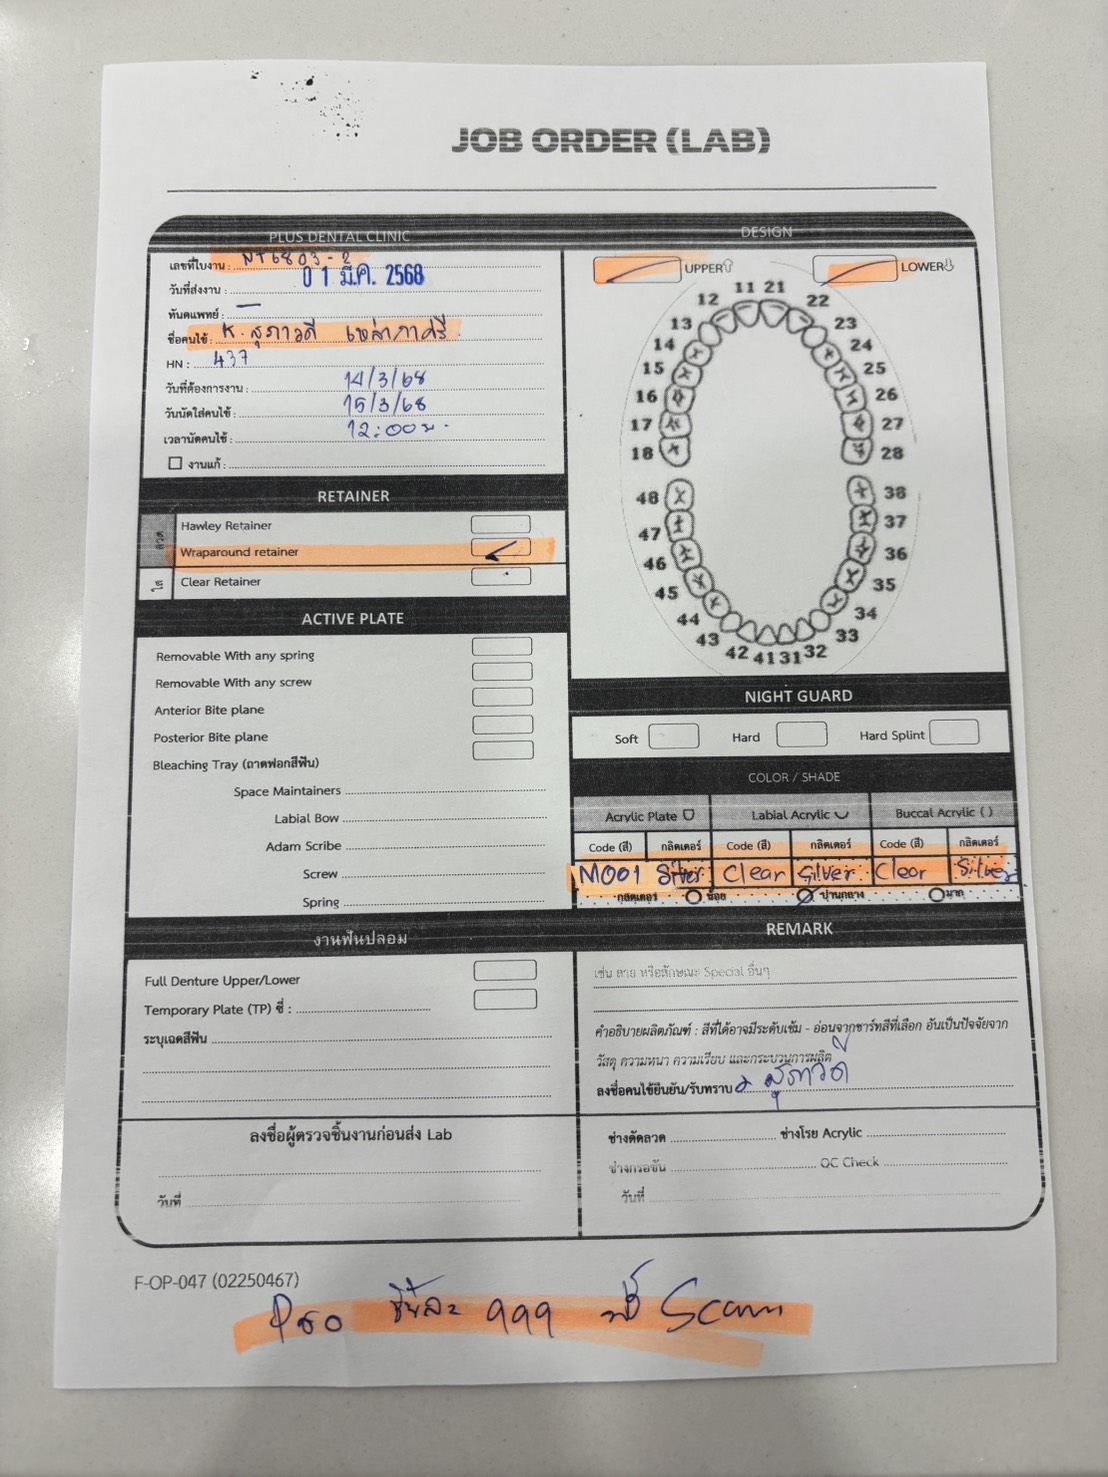 JOB ORDER (LAB)
PLUS DENTAL CLINIC
เลขที่ใบงาน : NT6803-2
วันที่ส่งงาน : 01 มี.ค. 2568
ทันตแพทย์ : —
ชื่อคนไข้ : K. สุภาวดี เหล่าภาศรี
HN : 437
วันที่ต้องการงาน : 14/3/68
วันนัดใส่คนไข้ : 15/3/68
เวลานัดคนไข้ : 12:00 น.
งานแก้ :
RETAINER
ลวด
Hawley Retainer
Wraparound retainer
ใส
Clear Retainer
ACTIVE PLATE
Removable With any spring
Removable With any screw
Anterior Bite plane
Posterior Bite plane
Bleaching Tray (ถาดฟอกสีฟัน)
Space Maintainers
Labial Bow
Adam Scribe
Screw
Spring
งานฟันปลอม
Full Denture Upper/Lower
Temporary Plate (TP) ซี่ :
ระบุเฉดสีฟัน
ลงชื่อผู้ตรวจชิ้นงานก่อนส่ง Lab
วันที่
DESIGN
UPPER LOWER
11 21
12 22
13 23
14 24
15 25
16 26
17 27
18 28
48 38
47 37
46 36
45 35
44 34
43 33
42 41 31 32
NIGHT GUARD
Soft Hard Hard Splint
COLOR / SHADE
Acrylic Plate Labial Acrylic Buccal Acrylic ( )
Code (สี) กลิตเตอร์ Code (สี) กลิตเตอร์ Code (สี) กลิตเตอร์
M001 Silver Clear Silver Clear Silver
กลิตเตอร์ น้อย ปานกลาง มาก
REMARK
เช่น ลาย หรือลักษณะ Special อื่นๆ
คำอธิบายผลิตภัณฑ์ : สีที่ได้อาจมีระดับเข้ม - อ่อนจากชาร์ทสีที่เลือก อันเป็นปัจจัยจาก
วัสดุ ความหนา ความเรียบ และกระบวนการผลิต
ลงชื่อคนไข้ยืนยัน/รับทราบ สุภาวดี
ช่างดัดลวด ช่างโรย Acrylic
ช่างกรอขัน QC Check
วันที่
F-OP-047 (02250467)
Pro ชิ้นละ 999 ฟรี Scan